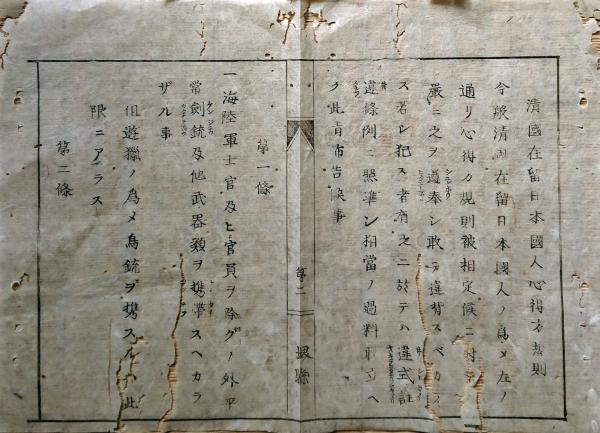 清國在留日本國人心得方規則
今般清國在留日本國人ノ爲メ左ノ
通リ心得方規則被相定候ニ付
嚴ニ之ヲ遵奉シ敢テ違背スベカラ
ス若シ犯ス者有之ニ於テハ違式註
違條例ニ照準シ相當ノ過料取立ヘ
ク此旨布告候事
第二
第一條
一海陸軍士官及ヒ官員ヲ除クノ外平
常劍銃及他武器類ヲ携帶スヘカラ
ザル事
但遊獵ノ爲メ鳥銃ヲ携スルハ此
限ニアラス
第二條